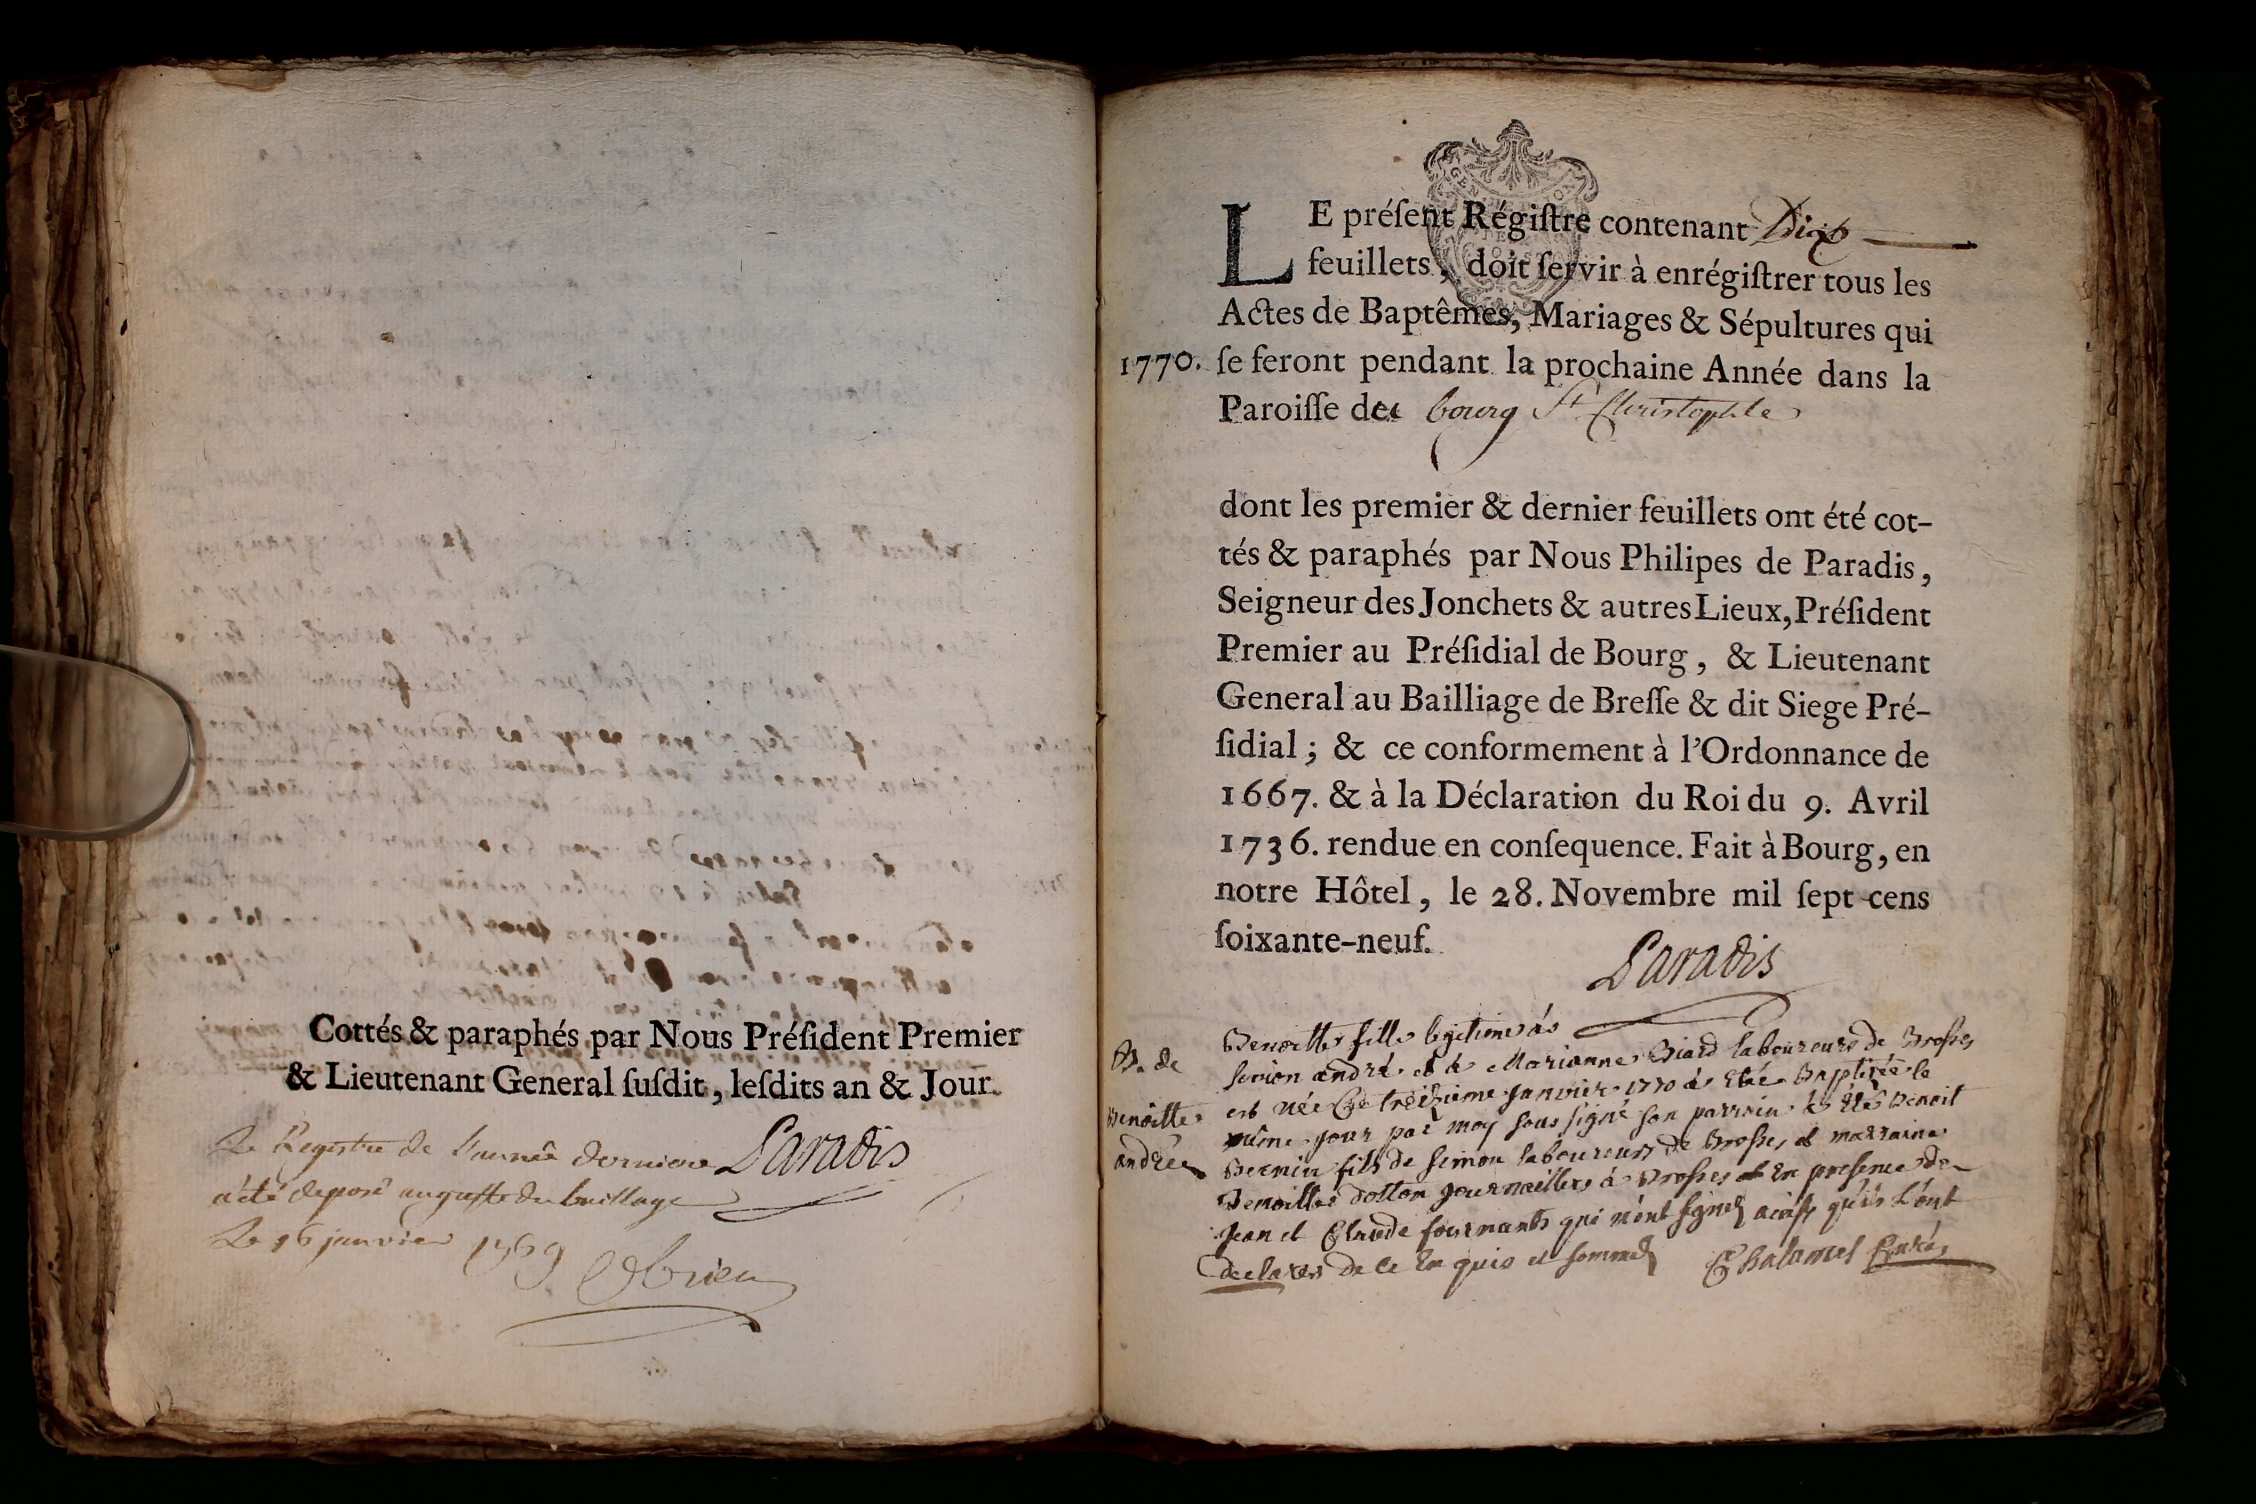 Cottés & paraphés par Nous Préſident Premier
& Lieutenant General ſuſdit, leſdits an & Jour.
Le Registre de L'année derniere Paradis
a été deposé au greffe du bailliage
Le 16 janvier 1769
LE préſent Régiſtre contenant Dix
feuillets, doit ſervir à enrégiſtrer tous les
Actes de Baptêmes, Mariages & Sépultures qui
1770. ſe feront pendant la prochaine Année dans la
Paroiſſe de bourg St Christophle
dont les premier & dernier feuillets ont été cot-
tés & paraphés par Nous Philipes de Paradis,
Seigneur des Jonchets & autres Lieux, Préſident
Premier au Préſidial de Bourg, & Lieutenant
General au Bailliage de Breſſe & dit Siege Pré-
ſidial; & ce conformement à l'Ordonnance de
1667. & à la Déclaration du Roi du 9. Avril
1736. rendue en conſequence. Fait à Bourg, en
notre Hôtel, le 28. Novembre mil ſept cens
ſoixante-neuf.
Paradis
B. de
Benoitte
andrée
Benoitte fille legitime de
simon andré et de Marianne Biard laboureurs de Brosses
est née Ce treizieme Janvier 1770 a Eté Baptisée le
même jour par moy sous signé son parrain a Eté Benoit
Bernin fils de simon laboureurs de Brosses et marraine
Benoitte dotton Journailliere a Brosses Et En presence de
Jean et Claude fournants qui n'ont signé ainsy qu'ils L'ont
declarer de ce En quis et sommé Chalamel Curé